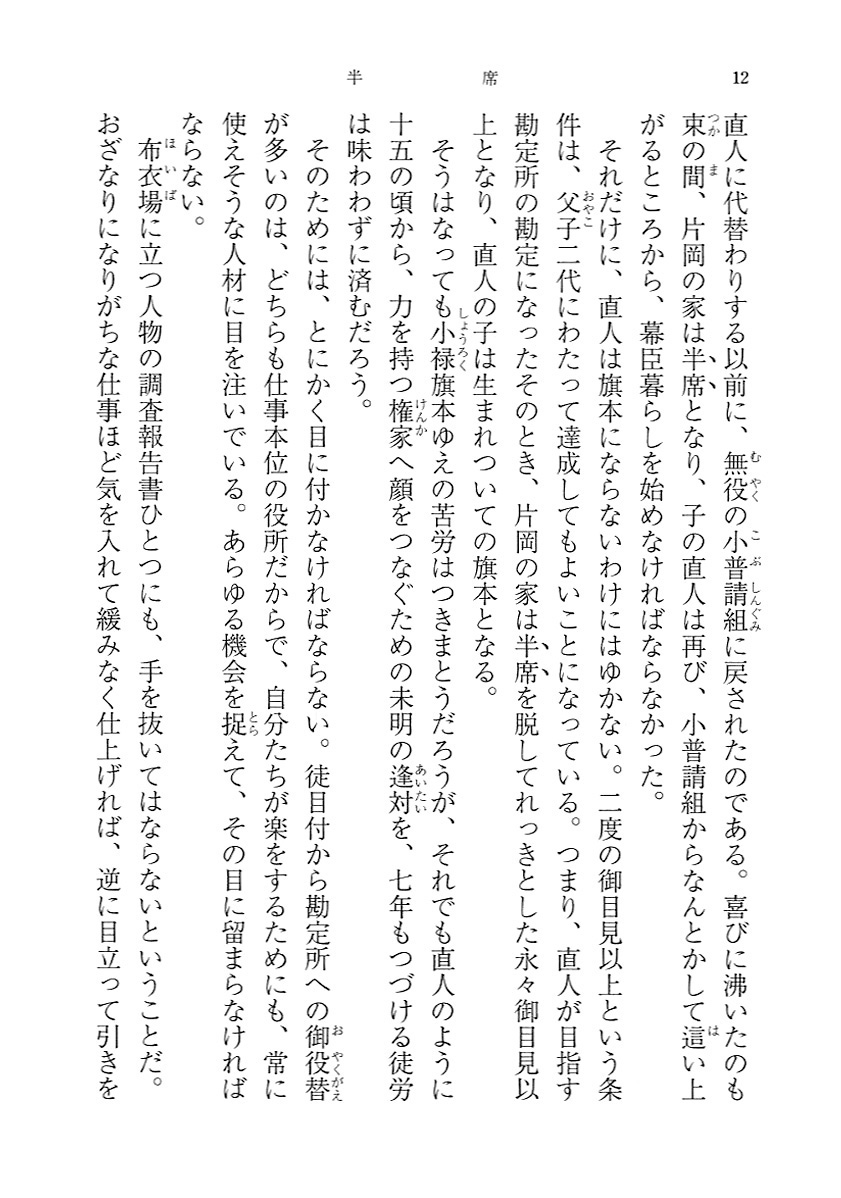 半席
12
直人に代替わりする以前に、無役の小普請組に戻されたのである。喜びに沸いたのも
束の間、片岡の家は半席となり、子の直人は再び、小普請組からなんとかして這い上
がるところから、幕臣暮らしを始めなければならなかった。
それだけに、直人は旗本にならないわけにはゆかない。二度の御目見以上という条
件は、父子二代にわたって達成してもよいことになっている。つまり、直人が目指す
勘定所の勘定になったそのとき、片岡の家は半席を脱してれっきとした永々御目見以
上となり、直人の子は生まれついての旗本となる。
そうはなっても小禄旗本ゆえの苦労はつきまとうだろうが、それでも直人のように
十五の頃から、力を持つ権家へ顔をつなぐための未明の逢対を、七年もつづける徒労
は味わわずに済むだろう。
そのためには、とにかく目に付かなければならない。徒目付から勘定所への御役替
が多いのは、どちらも仕事本位の役所だからで、自分たちが楽をするためにも、常に
使えそうな人材に目を注いでいる。あらゆる機会を捉えて、その目に留まらなければ
ならない。
布衣場に立つ人物の調査報告書ひとつにも、手を抜いてはならないということだ。
おざなりになりがちな仕事ほど気を入れて緩みなく仕上げれば、逆に目立って引きを